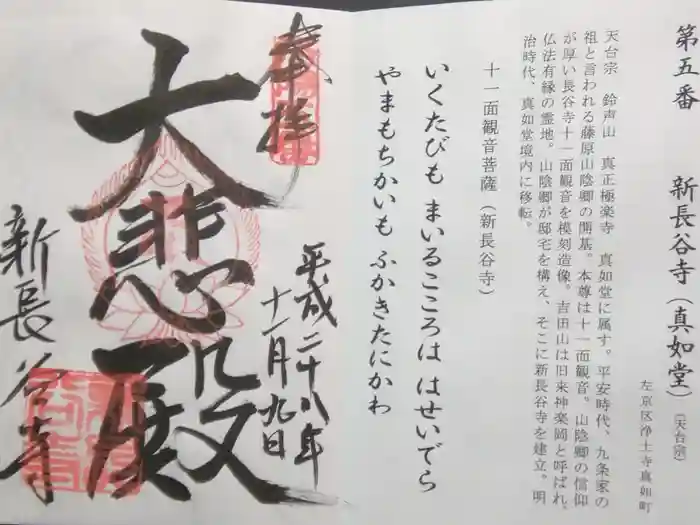 第五番　新長谷寺（真如堂）（天台宗）
左京区浄土寺真如町
天台宗　鈴声山　真正極楽寺　真如堂に属す。平安時代、九条家の
祖と言われる藤原山陰卿の開基。本尊は十一面観音。山陰卿の信仰
が厚い長谷寺十一面観音を模刻造像。吉田山は旧来神楽岡と呼ばれ、
仏法有縁の霊地。山陰卿が邸宅を構え、そこに新長谷寺を建立。明
治時代、真如堂境内に移転。
十一面観音菩薩（新長谷寺）
いくたびも まいるこころは はせいでら
やまもちかいも ふかきたにかわ
奉拝
平成二十八年
十一月九日
大悲殿
新長谷寺